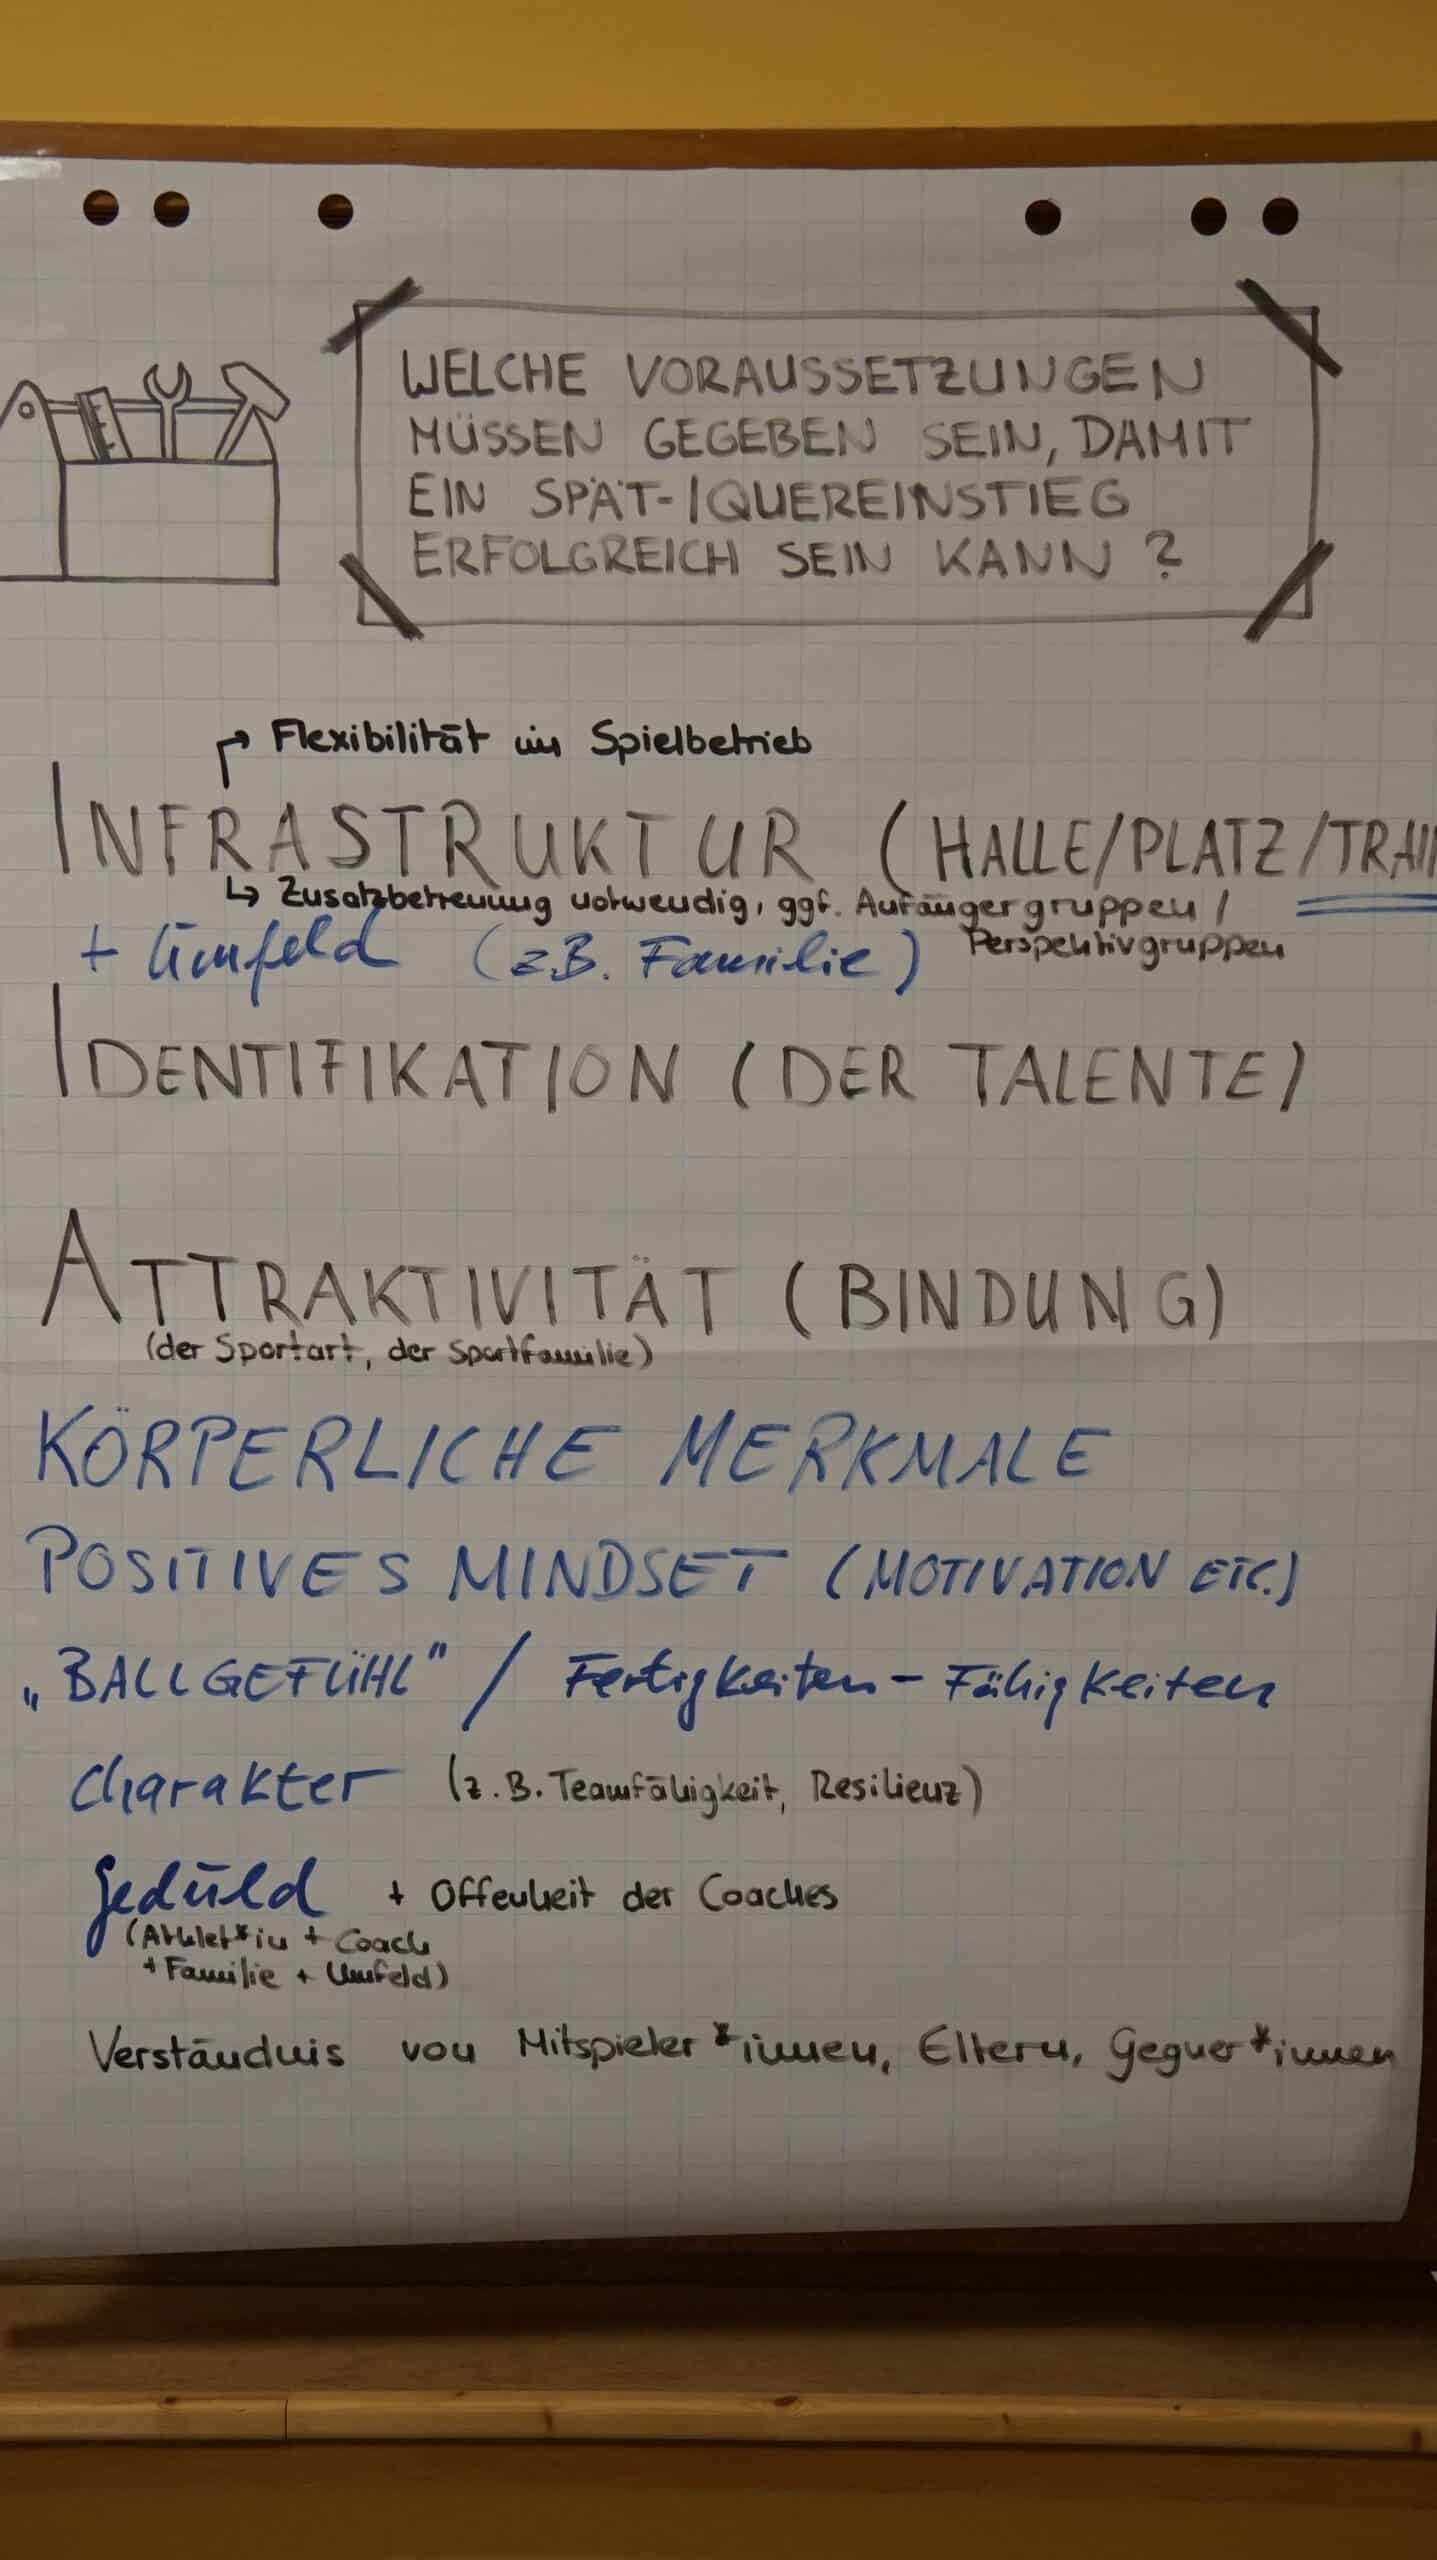 WELCHE VORAUSSETZUNGEN
MÜSSEN GEGEBEN SEIN, DAMIT
EIN SPÄT-/QUEREINSTIEG
ERFOLGREICH SEIN KANN ?
Flexibilität im Spielbetrieb
INFRASTRUKTUR (HALLE/PLATZ/TRAI
Zusatzbetreuung notwendig, ggf. Anfängergruppen /
Perspektivgruppen
+ Umfeld (z.B. Familie)
IDENTIFIKATION (DER TALENTE)
ATTRAKTIVITÄT (BINDUNG)
(der Sportart, der Sportfamilie)
KÖRPERLICHE MERKMALE
POSITIVES MINDSET (MOTIVATION ETC.)
„BALLGEFÜHL" / Fertigkeiten - Fähigkeiten
Charakter (z.B. Teamfähigkeit, Resilienz)
Geduld + Offenheit der Coaches
(Athlet*in + Coach
+ Familie + Umfeld)
Verständnis von Mitspieler*innen, Eltern, Gegner*innen